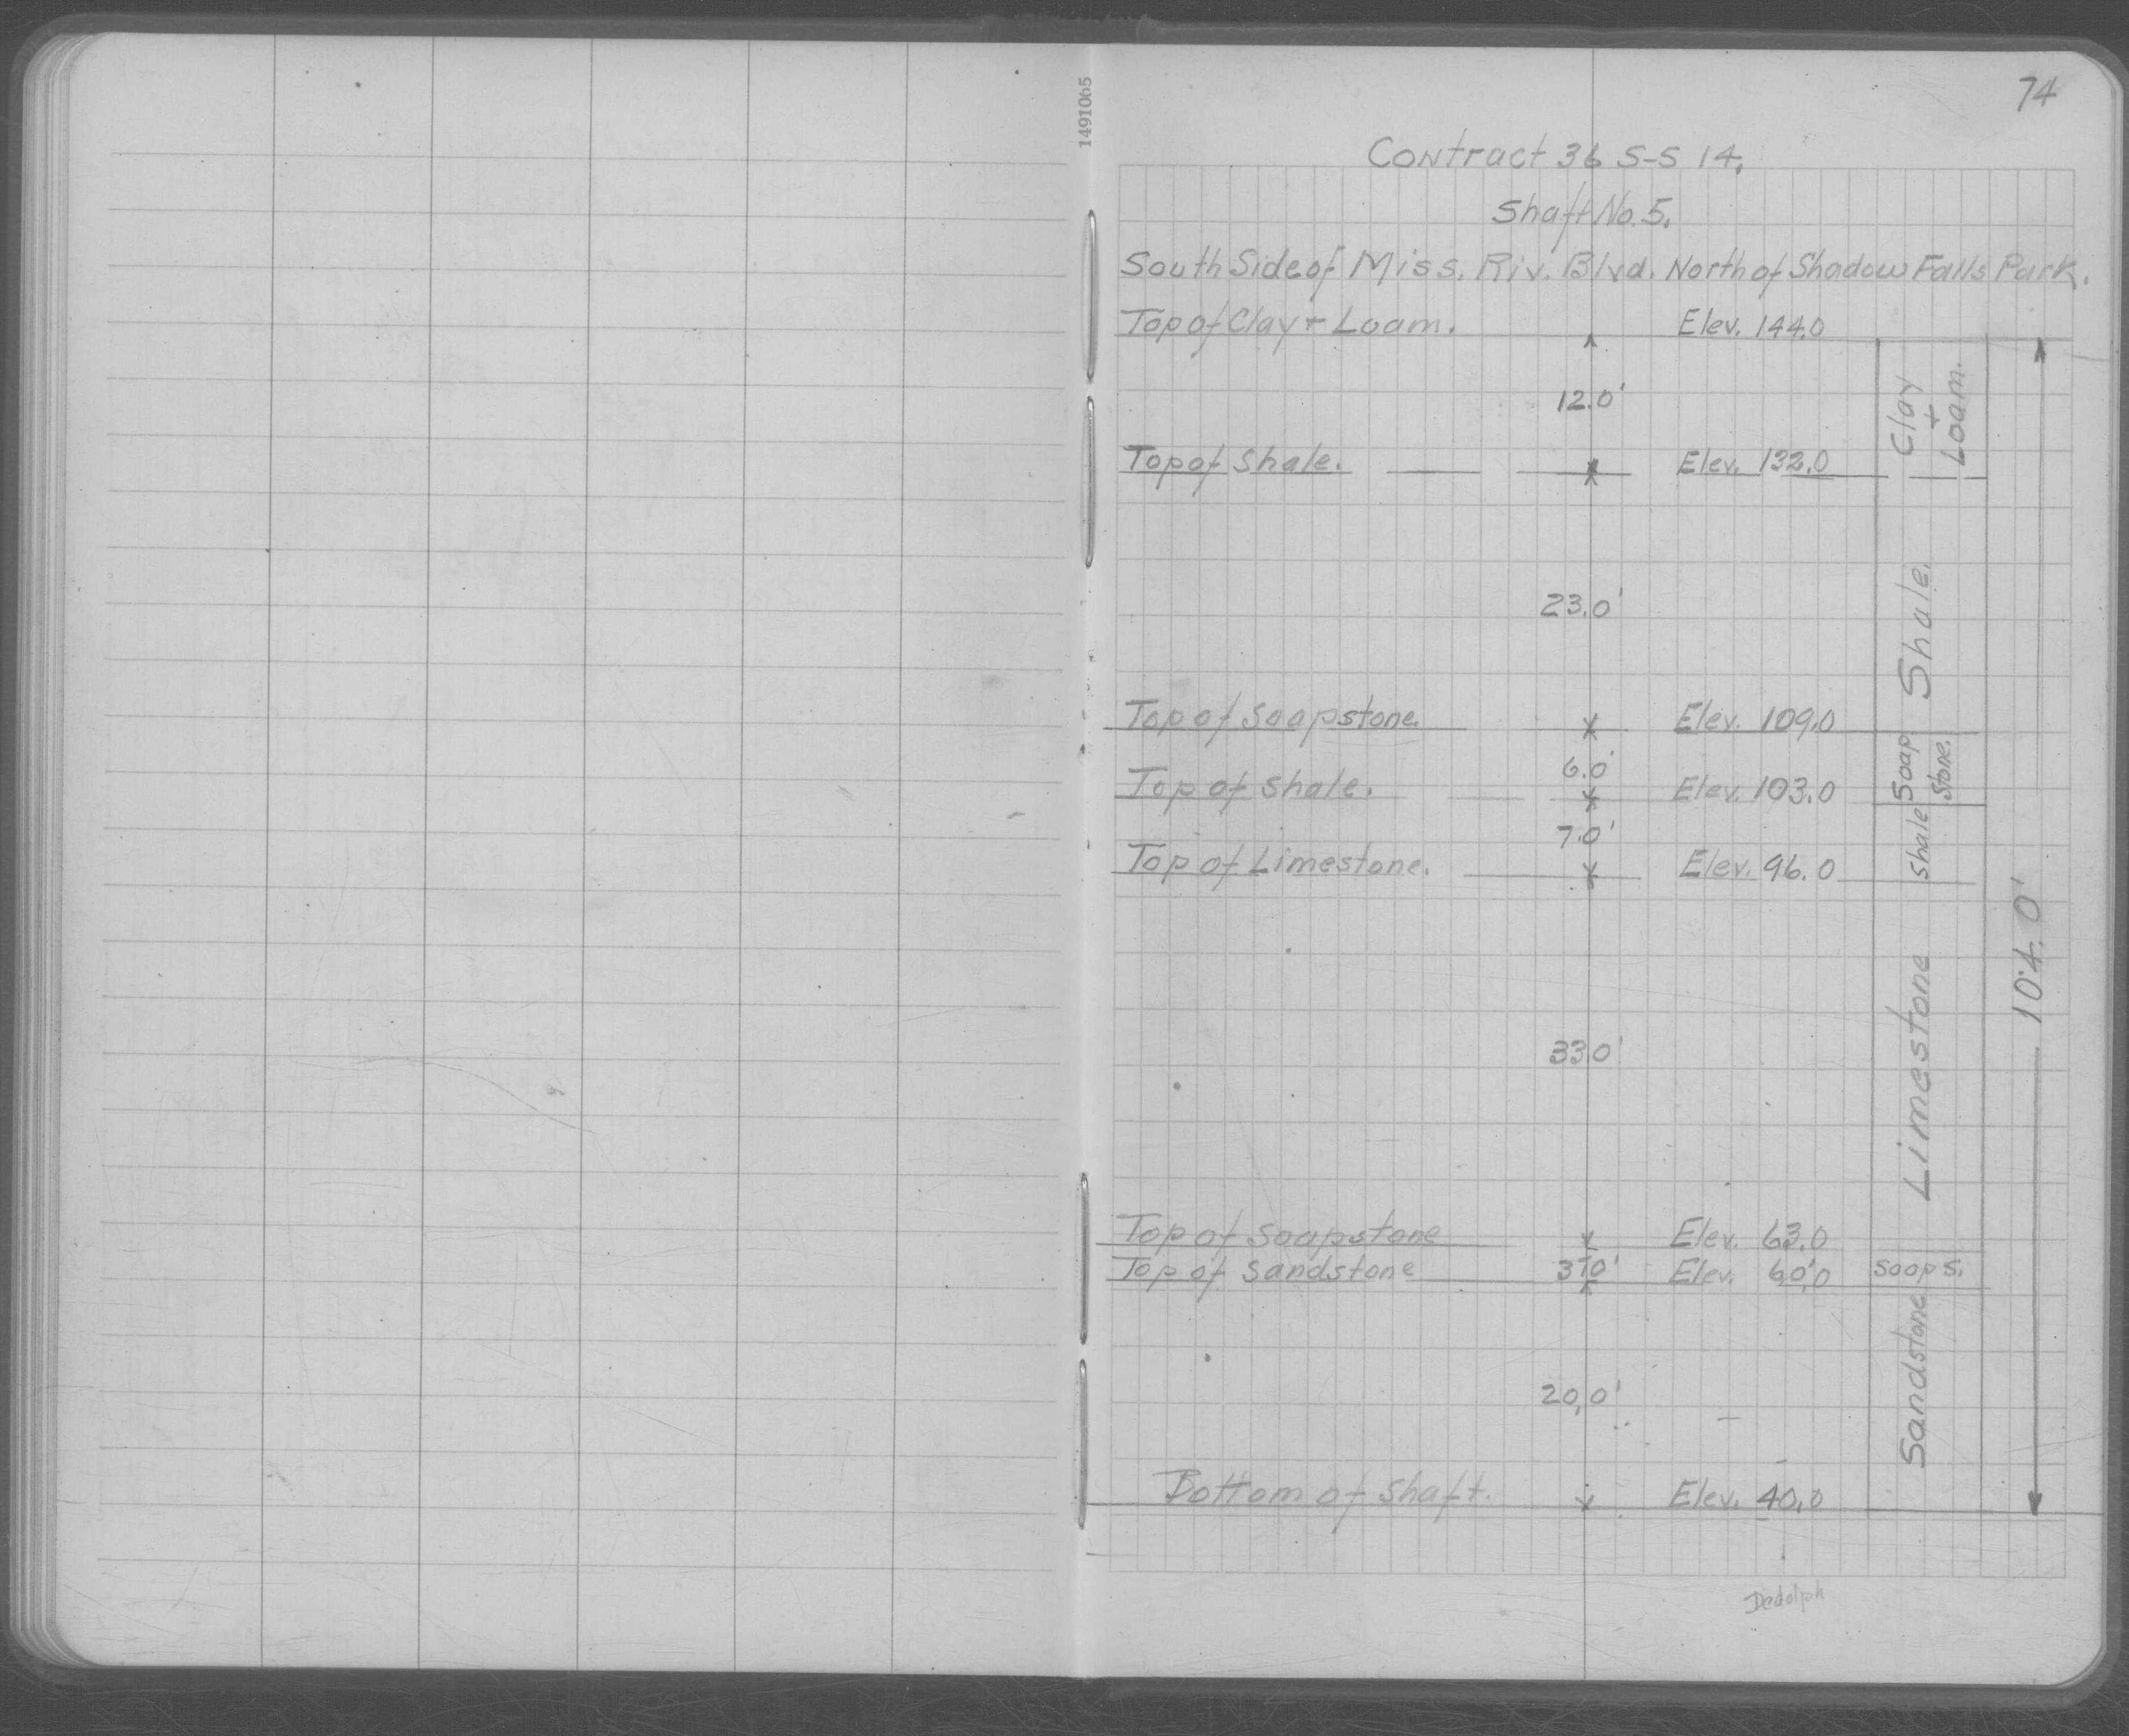 74
1491065
Contract 36 S-S 14.
Shaft No. 5.
South Side of Miss. Riv. Blvd. North of Shadow Falls Park.
Top of Clay + Loam. Elev. 144.0
12.0'
Clay + Loam.
Top of Shale. Elev. 132.0
23.0'
Shale.
Top of Soapstone. Elev. 109.0
6.0'
Soap Stone.
Top of Shale. Elev. 103.0
7.0'
Shale
Top of Limestone. Elev. 96.0
33.0'
Limestone
104.0'
Top of Soapstone Elev. 63.0
Top of Sandstone 3.0' Elev. 60.0 Soaps.
20.0'
Sandstone
Bottom of Shaft. Elev. 40.0
Dedolph